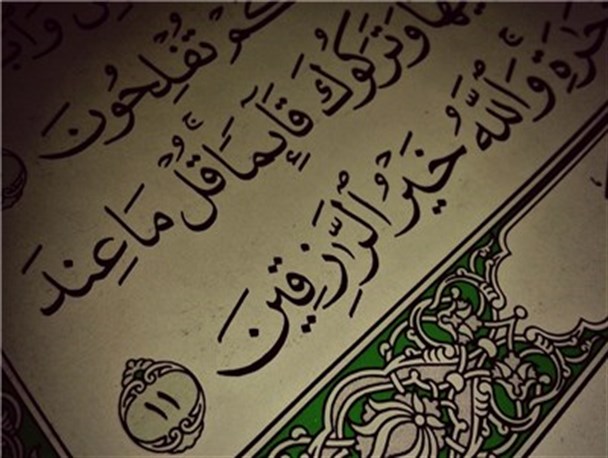 كُمْ تُفْلِحُونَ
ـهَا وَتَرَكُوكَ قَآئِمًا ۚ قُلْ مَا عِندَ
ـجَرَةِ ۚ وَٱللَّهُ خَيْرُ ٱلرَّٰزِقِينَ
١١